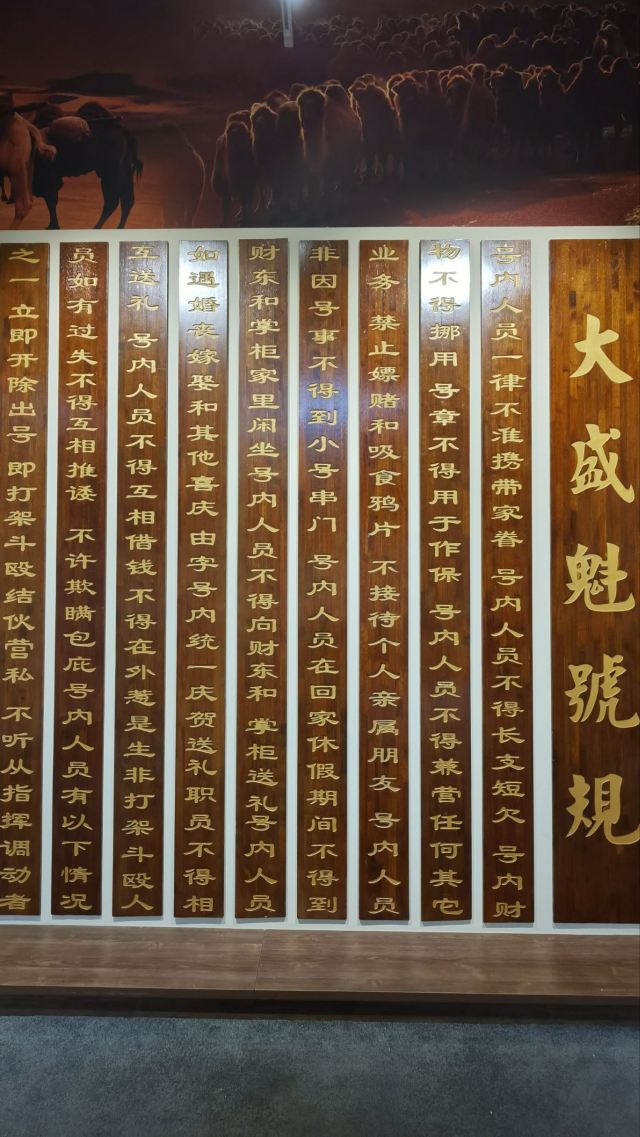 大盛魁號規
号内人员一律不准携带家眷 号内人员不得长支短欠 号内财
物不得挪用 号章不得用于作保 号内人员不得兼营任何其它
业务 禁止嫖赌和吸食鸦片 不接待个人亲属朋友 号内人员
非因号事不得到小号串门 号内人员在回家休假期间不得到
财东和掌柜家里闲坐号内人员不得向财东和 掌柜送礼号内人员
如遇婚丧嫁娶和其他喜庆 由字号内统一庆贺送礼职员不得相
互送礼 号内人员不得互相借钱 不得在外惹是生非打架斗殴人
员如有过失不得互相推诿 不许欺瞒包庇号内人员有以下情况
之一 立即开除出号 即打架斗殴结伙营私 不听从指挥调动者